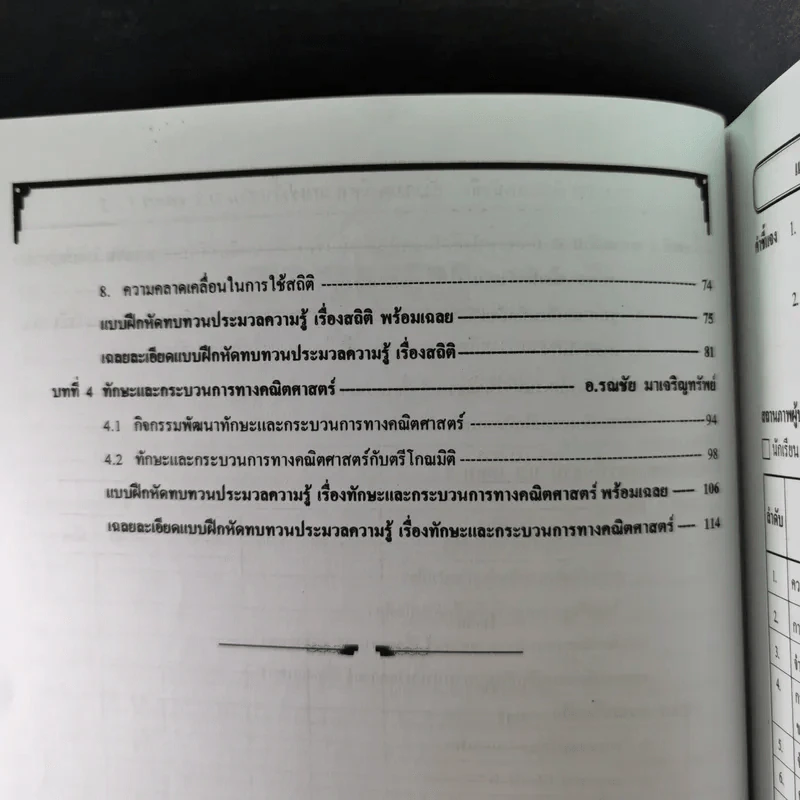 8. ความคลาดเคลื่อนในการใช้สถิติ 74
แบบฝึกหัดทบทวนประมวลความรู้ เรื่องสถิติ พร้อมเฉลย 75
เฉลยละเอียดแบบฝึกหัดทบทวนประมวลความรู้ เรื่องสถิติ 81
บทที่ 4 ทักษะและกระบวนการทางคณิตศาสตร์ อ.รณชัย มาเจริญทรัพย์
4.1 กิจกรรมพัฒนาทักษะและกระบวนการทางคณิตศาสตร์ 94
4.2 ทักษะและกระบวนการทางคณิตศาสตร์กับตรีโกณมิติ 98
แบบฝึกหัดทบทวนประมวลความรู้ เรื่องทักษะและกระบวนการทางคณิตศาสตร์ พร้อมเฉลย 106
เฉลยละเอียดแบบฝึกหัดทบทวนประมวลความรู้ เรื่องทักษะและกระบวนการทางคณิตศาสตร์ 114
คำชี้แจง 1.
2.
นักเรียน
ลำดับ
1.
2.
3.
4.
5.
6.